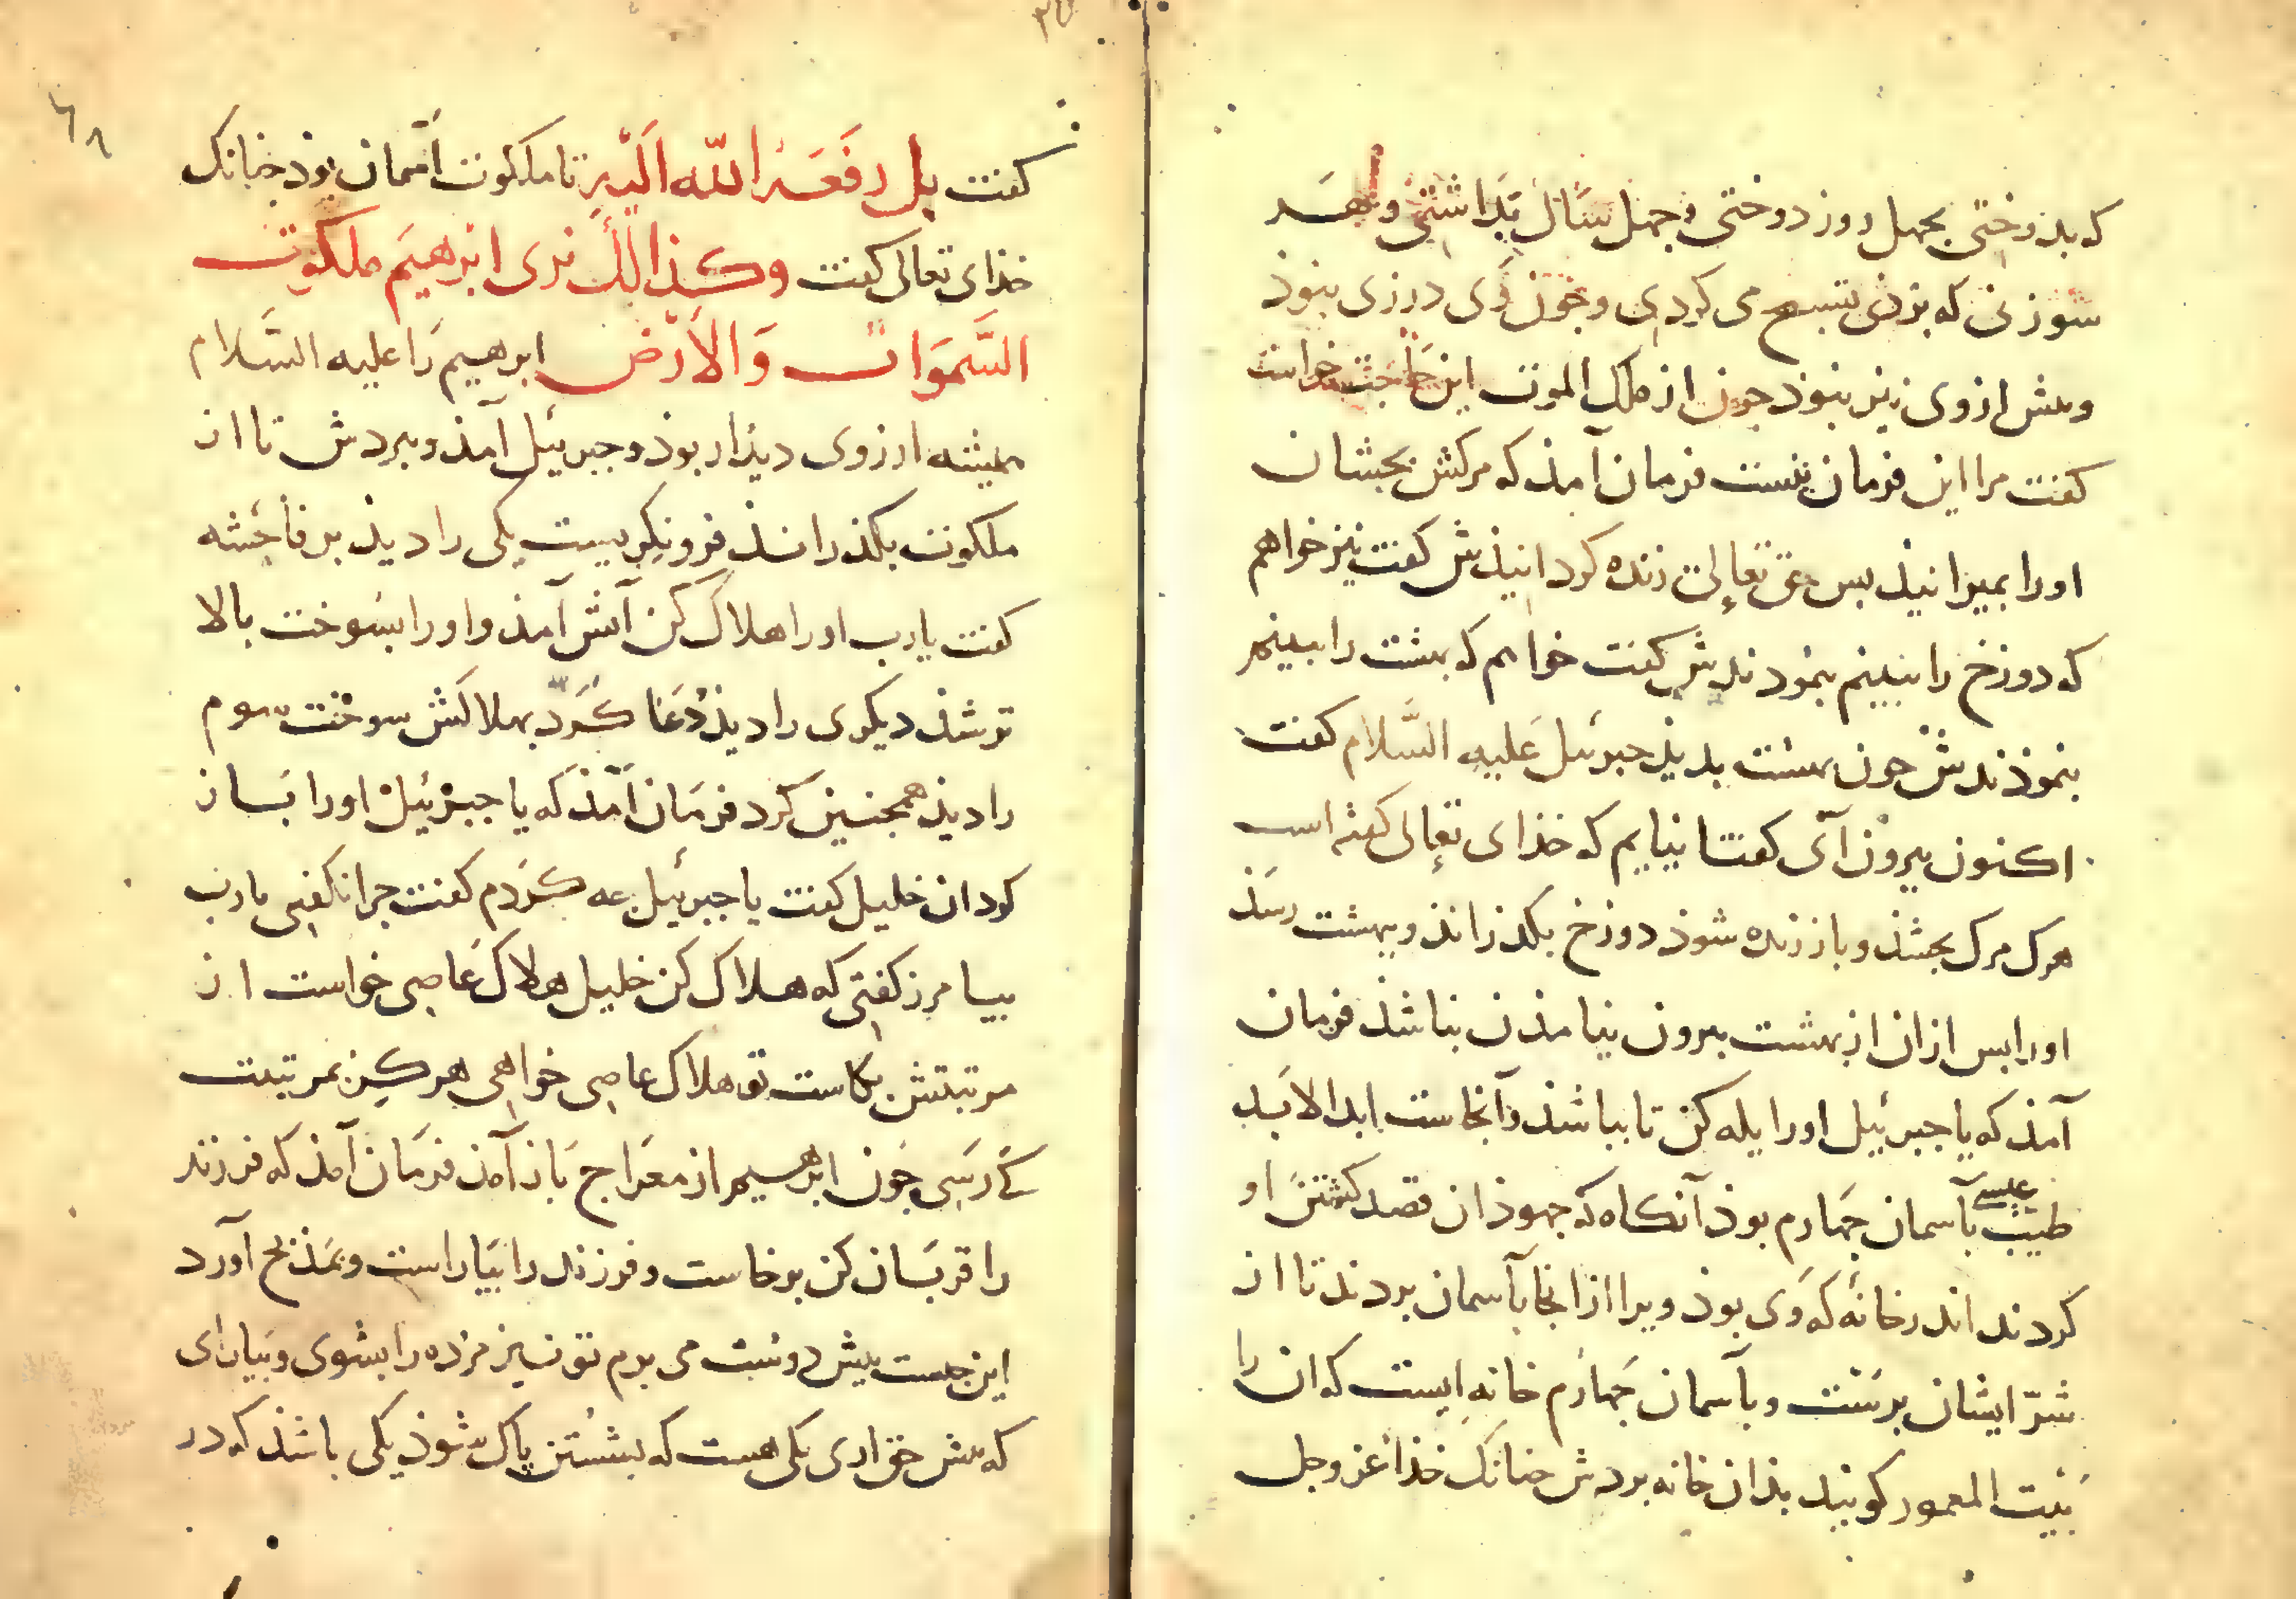 که بدوختی بچهل روز دوختی و چهل سال بداشتی و بهر
سوزنی که بزدی تسبیح می کردی و چون وی درزی نبوذ
و پیش ازوی نیز نبوذ چون از ملک الموت این حاجت خواست
کفت مرا این فرمان نیست فرمان آمذ که مرکش بچشان
اورا بمیرانیذ بس حق تعالی زنده کردانیذش کفت نیز خواهم
که دوزخ را ببینم بنمودندش کفت خواهم که بهشت را ببینم
بنموذندش جون بهشت بدیذ جبرئیل علیه السّلام کفت
اکنون بیرون آی کفتا نیایم که خذای تعالی کفته است
هرک مرک بچشذ و باز زنده شوذ دوزخ بکذراند و ببهشت رسذ
اورا بس ازان از بهشت بیرون نیامذن نباشذ فرمان
آمذ که یا جبرئیل اورا یله کن تا بباشذ و آنجاست ابدالابد
عیسی
طیب بآسمان جهارم بوذ آنکاه که جهوذان قصد کشتن او
کردند اندر خانهٔ که وی بوذ ویرا از انجا بآسمان بردند تا از
شرّ ایشان برست و بآسمان جهارم خانه ایست که ان را
بیت المعمور کویند بذان خانه بردش جنانک خذا عز وجل
۶۸
کفت بل رفعه الله الیه تا ملکوت آسمان بوذ جنانک
خذای تعالی کفت وکذالک نری ابرهیم ملکوت
السَّموات وَالاَرْض ابرهیم را علیه السّلام
همیشه ارزوی دیذار بوذ و جبرئیل آمذ و ببردش تا از
ملکوت بکذرانذ فرو نکریست یکی را دیذ بر فاحشه
کفت یارب اورا هلاک کن آتش آمذ و اورا بسوخت بالا
تر شذ دیکری را دیذ دُعا کرد بهلاکش سوخت سوم
را دیذ همجنین کرد فرمان آمذ که یا جبرئیل اورا بساز
کردان خلیل کفت یا جبرئیل جه کردم کفت جرا نکفتی یارب
بیامرز کفتی که هلاک کن خلیل هلاک عاصی خواست از
مرتبتش بکاست تو هلاک عاصی خواهی هرکز بمرتبت
کَی رسی جون ابرهیم از معراج باز آمذ فرمان آمذ که فرزند
را قربان کن برخاست و فرزند را بیاراست و بمذبح آورد
این جیست بیش دوست می برم تو نیز مرده را بشوی و بیارای
که بیش حق اری یکی هست که بشستن پاک شوذ یکی باشذ که در